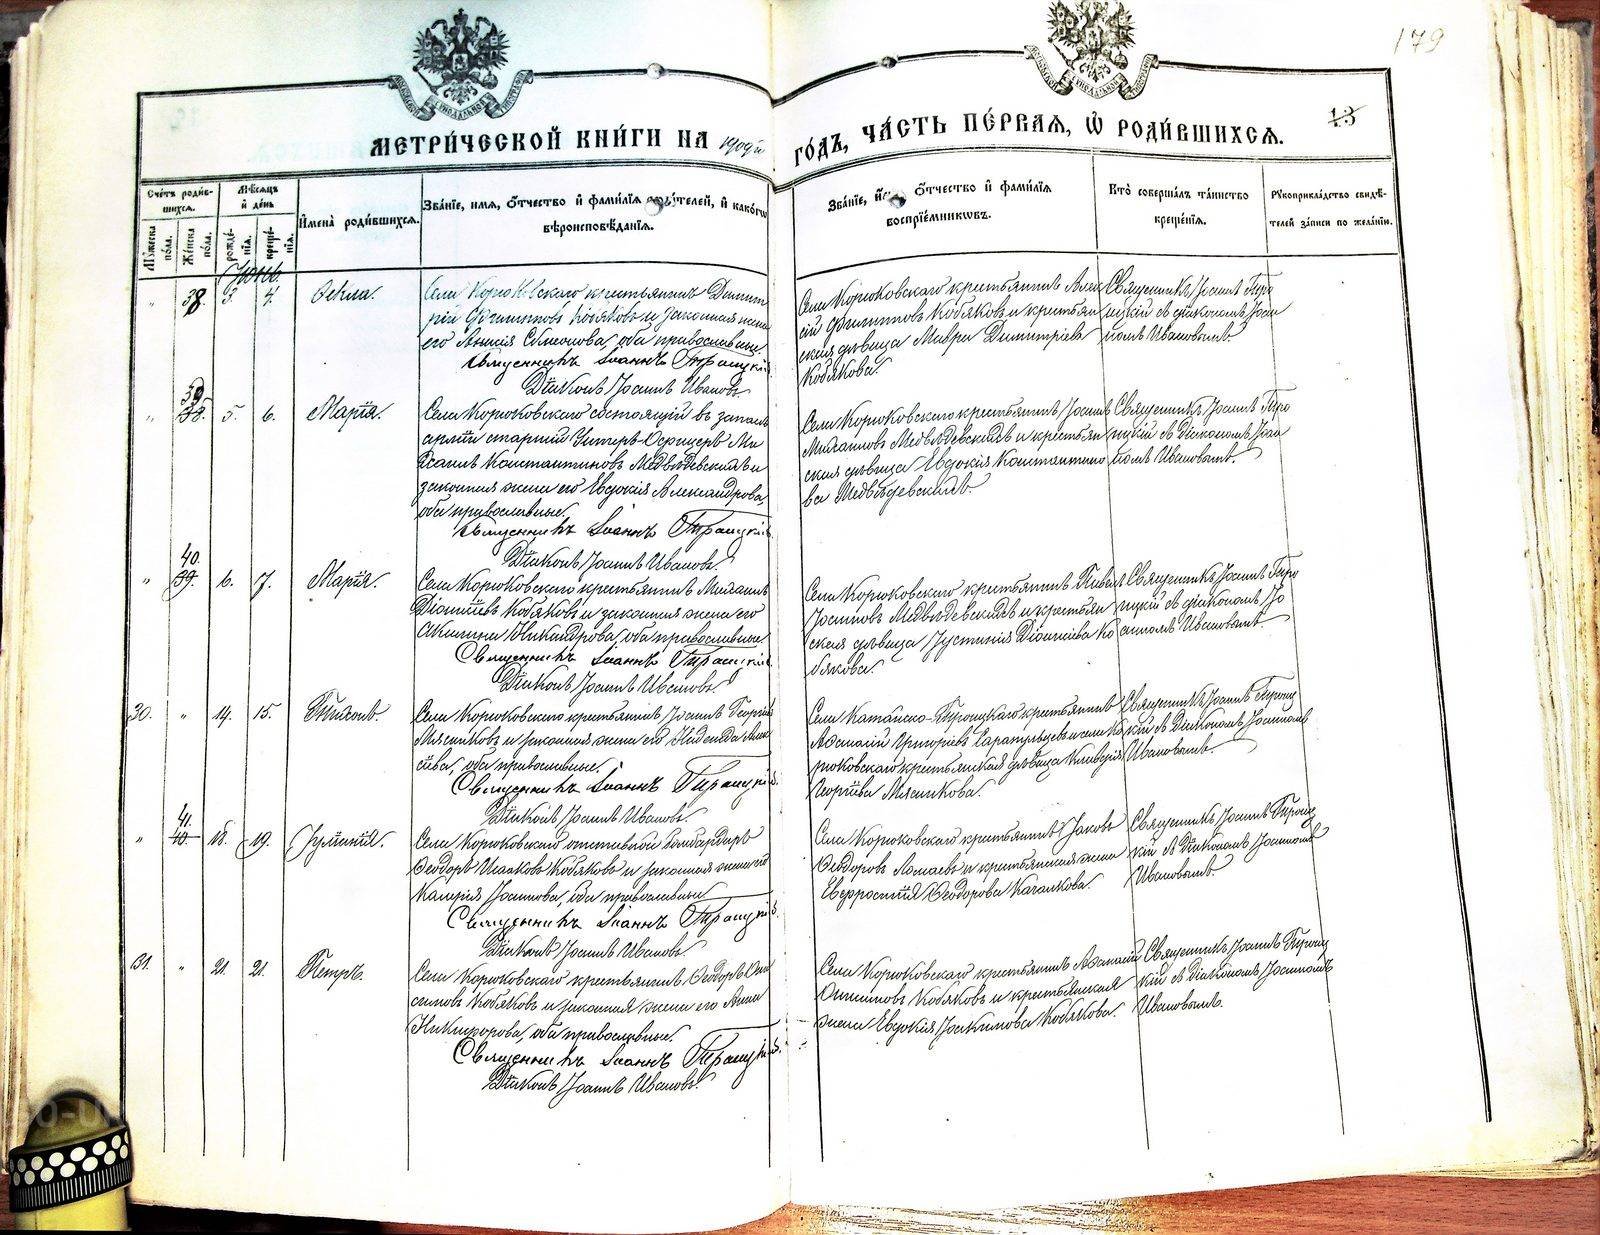 179
МЕТРИ́ЧЕСКОЙ КНИ́ГИ НА 1909й ГО́ДЪ, ЧА́СТЬ ПЕ́РВАЯ, Ѡ҆ РОДИ́ВШИХСЯ.
13
Сче́тъ роди́в-
шихся.
Му́жеска по́ла.
Же́нска по́ла.
Мѣ́сяцъ
и҆ де́нь
рожде́-
нїя.
креще́-
нїя.
И҆мена̀ роди́вшихся.
Зва́нїе, имя, ѻ҆́тчество и҆ фами́лїя роди́телей, и҆ како́гѡ
вѣроисповѣ́данїя.
Зва́нїе, и҆́мя, ѻ҆́тчество и҆ фами́лїя
воспрїе́мникѡвъ.
Кто̀ соверша́лъ та́инство
креще́нїя.
Рꙋкоприкла́дство свидѣ́-
телей за́писи по жела́нїю.
Іюнь.
„ 38. 3. 4. Ѳекла.
Села Корюковскаго крестьянинъ Димит
рій Филипповъ Кобяковъ и законная жена
его Анисія Симеонова, оба православные.
Священникъ Іоаннъ Троицкій.
Діаконъ Іоаннъ Ивановъ.
Села Корюковскаго крестьянинъ Алек
сій Филипповъ Кобяковъ и крестьян
ская дѣвица Мавра Димитріева
Кобякова.
Священникъ Іоаннъ Тро
ицкій съ діакономъ Іоан
номъ Ивановымъ.
39.
„ 38. 5. 6. Марія.
Села Корюковскаго состоящій въ запасѣ
арміи старшій Унтеръ-Офицеръ Ми
хаилъ Константиновъ Медвѣдевскихъ и
законная жена его Евдокія Александрова,
оба православные.
Священникъ Іоаннъ Троицкій.
Діаконъ Іоаннъ Ивановъ.
Села Корюковскаго крестьянинъ Іоаннъ
Михаиловъ Медвѣдевскихъ и крестьян
ская дѣвица Евдокія Константино
ва Медвѣдевскихъ.
Священникъ Іоаннъ Тро
ицкій съ діакономъ Іоан
номъ Ивановымъ.
40.
„ 39. 6. 7. Марія.
Села Корюковскаго крестьянинъ Михаилъ
Діонисіевъ Кобяковъ и законная жена его
Акилина Никандрова, оба православные.
Священникъ Іоаннъ Троицкій.
Діаконъ Іоаннъ Ивановъ.
Села Корюковскаго крестьянинъ Павелъ
Іоанновъ Медвѣдевскихъ и крестьян
ская дѣвица Іустинія Діонисіева Ко
бякова.
Священникъ Іоаннъ Тро
ицкій съ діакономъ Іо
анномъ Ивановымъ.
30. „ 14. 15. Тихонъ.
Села Корюковскаго крестьянинъ Іоаннъ Георгіевъ
Мясниковъ и законная жена его Надежда Алек
сіева, оба православные.
Священникъ Іоаннъ Троицкій.
Діаконъ Іоаннъ Ивановъ.
Села Катайско-Троицкаго крестьянинъ
Аѳанасій Григоріевъ Сарапульцевъ и села Ко
рюковскаго крестьянская дѣвица Клавдія
Георгіева Мясникова.
Священникъ Іоаннъ Троиц
кій съ Діакономъ Іоанномъ
Ивановымъ.
41.
„ 40. 18. 19. Іуліанія.
Села Корюковскаго отставной бомбардиръ
Ѳеодоръ Исааковъ Кобяковъ и законная жена его
Валерія Іоаннова, оба православные
Священникъ Іоаннъ Троицкій.
Діаконъ Іоаннъ Ивановъ.
Села Корюковскаго крестьянинъ Іаковъ
Ѳеодоровъ Ломаевъ и крестьянская жена
Евфросинія Ѳеодорова Качалкова.
Священникъ Іоаннъ Троиц
кій съ Діакономъ Іоанномъ
Ивановымъ.
31. „ 21. 21. Петръ.
Села Корюковскаго крестьянинъ Ѳеодоръ Они
симовъ Кобяковъ и законная жена его Анна
Никифорова, оба православные.
Священникъ Іоаннъ Троицкій.
Діаконъ Іоаннъ Ивановъ.
Села Корюковскаго крестьянинъ Аѳанасій
Онисимовъ Кобяковъ и крестьянская
жена Евдокія Іоакимова Кобякова.
Священникъ Іоаннъ Троиц
кій съ Діакономъ Іоанномъ
Ивановымъ.